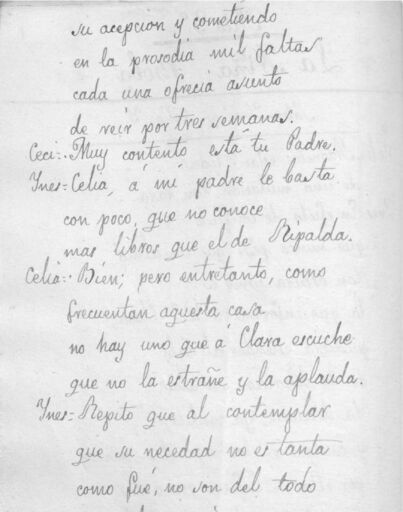 su acepcion y cometiendo
en la prosodia mil faltas
cada una ofrecia asunto
de reir por tres semanas.
Ceci:- Muy contento está tu Padre.
Ynes= Celia, á mi padre le basta
con poco, que no conoce
mas libros que el de Ripalda.
Celia:- Bien; pero entretanto, como
frecuentan aquesta casa
no hay uno que á Clara escuche
que no la estrañe y la aplauda.
Ynes:- Repito que al contemplar
que su necedad no es tanta
como fué, no son del todo